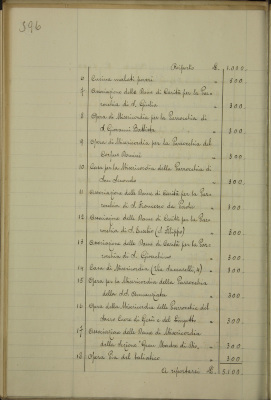 596
Riporto £. 1,000.
6 Cucina malati poveri " 500.
7 Associazione delle Dame di Carità per la Par
rocchia di S. Giulia " 300.
8 Opera di Misericordia per la Parrocchia di
S. Giovanni Battista " 300.
9 Opera di Misericordia per la Parrocchia del
Corpus Domini " 300.
10 Casa per la Misericordia della Parrocchia di
San Secondo " 300.
11 Associazione delle Dame di Carità per la Par
rocchia di S. Francesco da Paola " 300.
12 Associazione delle Dame di Carità per la Par
rocchia di S. Eusebio (S. Filippo) " 300.
13 Associazione delle Dame di Carità per la Par
rocchia di S. Gioachino " 300.
14 Casa di Misericordia (Via 4) " 300.
15 Opera per la Misericordia della Parrocchia
della SS. Annunziata " 300.
16 Opera della Misericordia della Parrocchia del
Sacro Cuore di Gesù " 300.
17 Associazione delle Dame di Misericordia
della Gran Madre di Dio " 300.
18 Opera Pia del baliatico " 300.
A riportarsi £. 5,100.